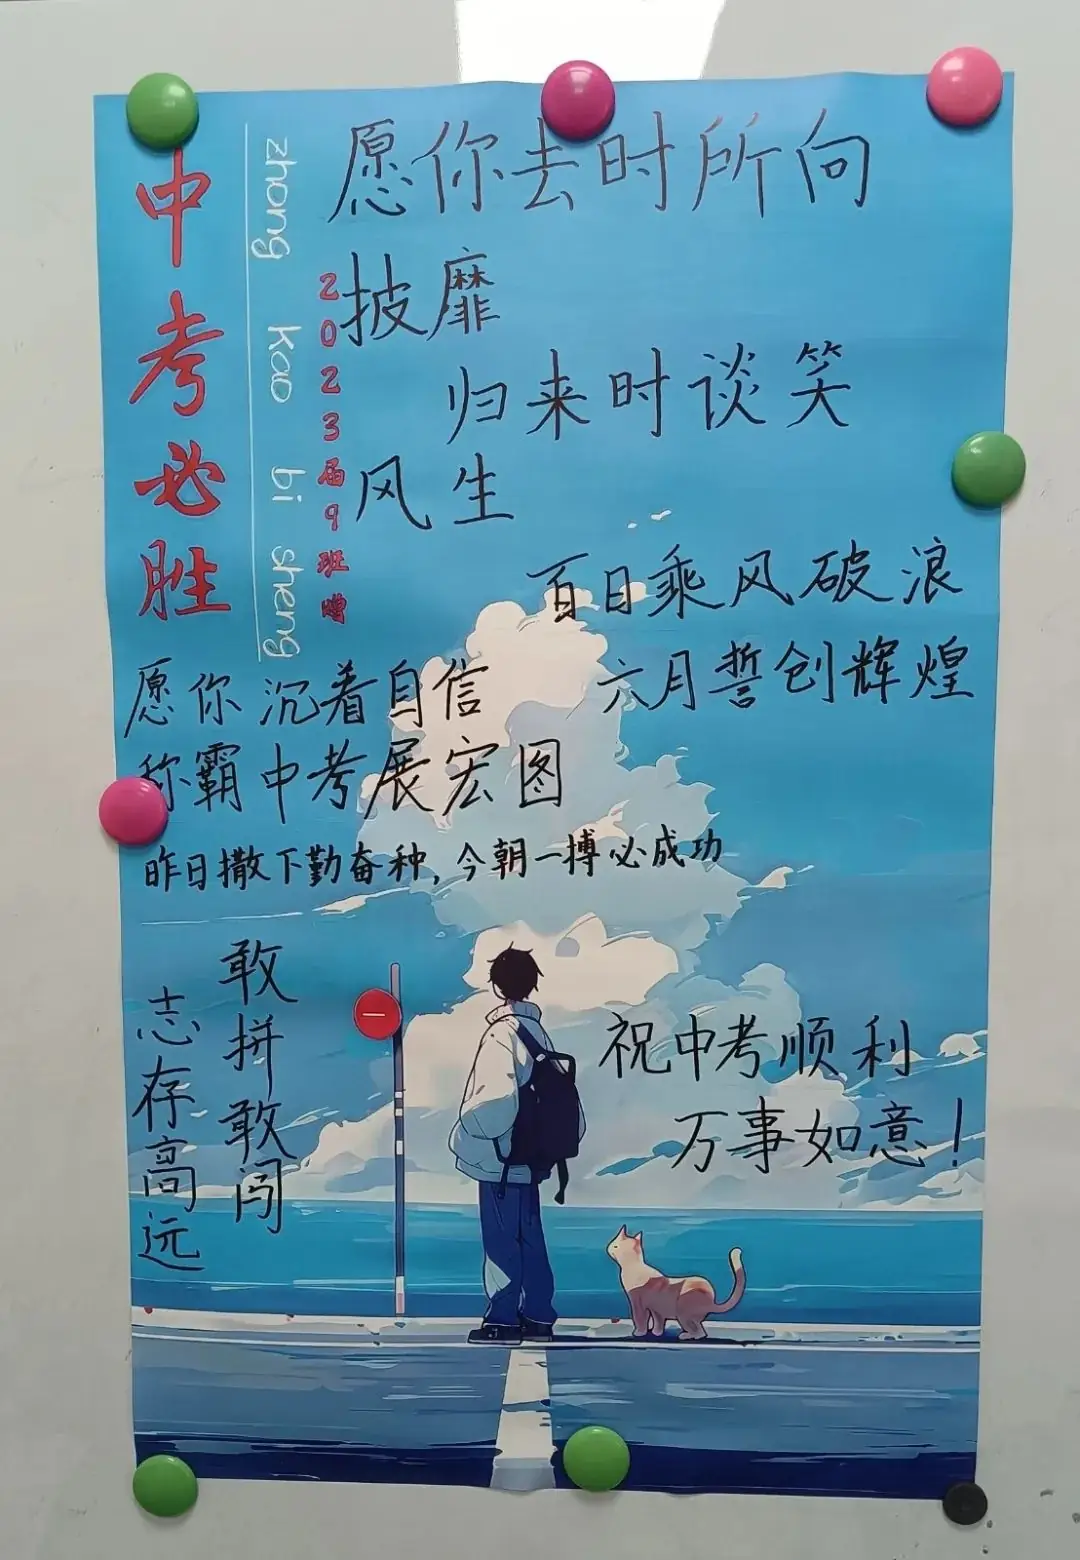 中考必胜
zhong kao bi sheng
2023届9班赠
愿你去时所向
披靡
归来时谈笑
风生
百日乘风破浪
六月誓创辉煌
愿你沉着自信
称霸中考展宏图
昨日撒下勤奋种，今朝一搏必成功
敢拼敢闯
志存高远
祝中考顺利
万事如意！